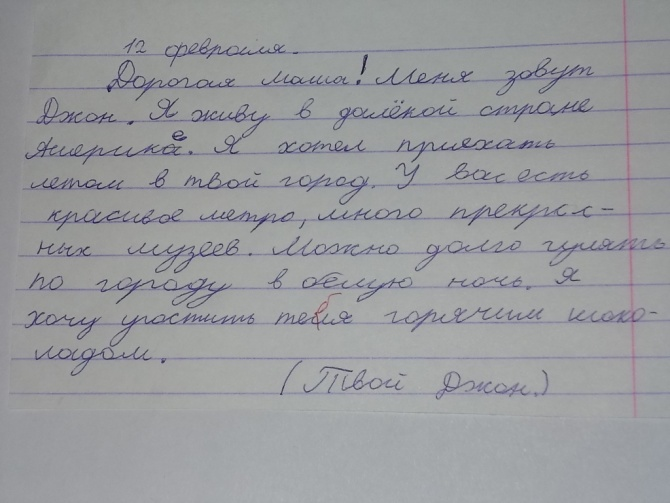 12 февраля.
Дорогая маша! Меня зовут
Джон. Я живу в далёкой стране
Америке. Я хотел приехать
летом в твой город. У вас есть
красивое метро, много прекрас-
ных музеев. Можно долго гулять
по городу в белую ночь. Я
хочу угостить тебя горячим шоко-
ладом.
(Твой Джон.)